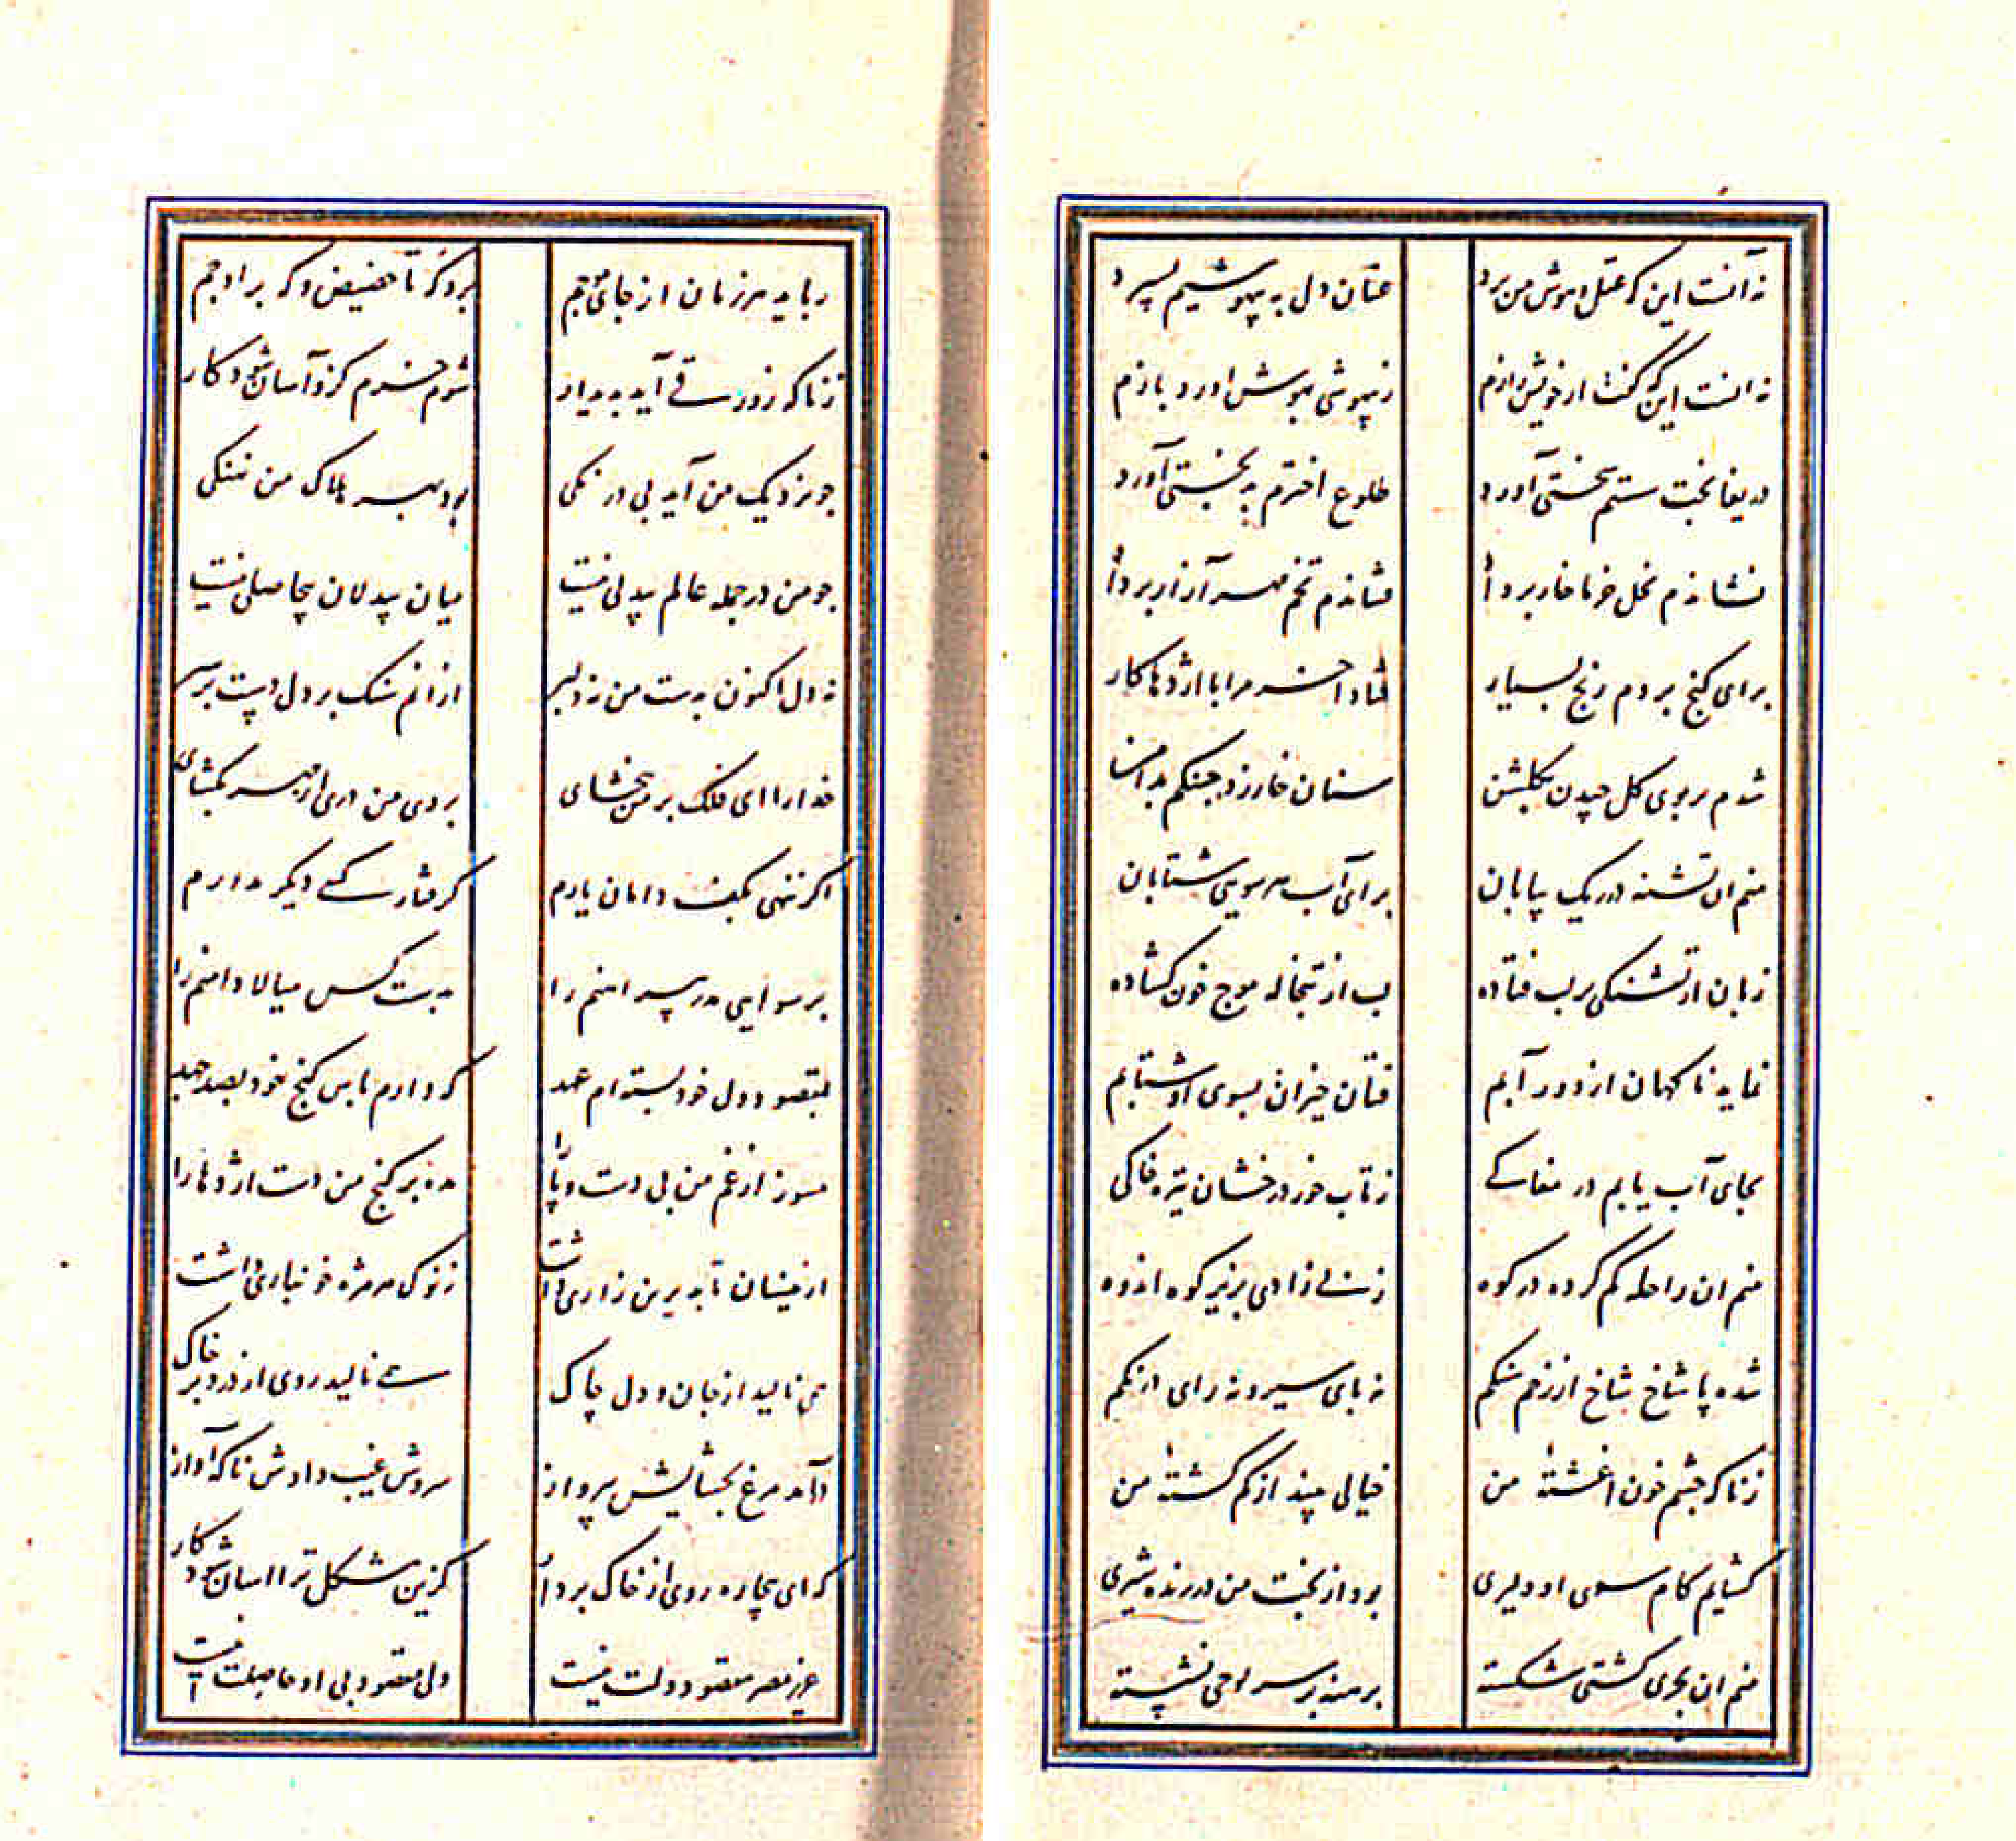 نه آنست این که عقل و هوش من برد عنان دل به بیهوشیم بسپرد
نه انست این که گفت از خویش رازم ز بیهوشی بهوش اورد بازم
دریغا بخت سستم سختی آورد طلوع اخترم بدبختی آورد
نشاندم نخل خرما خار بردا فشاندم تخم مهر آزار بردا
برای کنج بردم رنج بسیار فتاد اخر مرا با اژدها کار
شدم بر بوی کل چیدن بکلشن سنان خار زد چنکم بدامن
منم ان تشنه در یک بیابان برای آب هر سویی شتابان
زبان از تشنکی بر لب فتاده لب از تبخاله موج خون کشاده
نماید ناکهان از دور آبم فتان خیزان بسوی او شتابم
بجای آب یابم در مغاکی ز تاب خور درخشان تیره خاکی
منم ان راحله کم کرده در کوه ز بی زادی بزیر کوه اندوه
شده پا شاخ شاخ از زخم سنکم نه پای سیر و نه رای درنکم
زناکه چشم خون اغشتهٔ من خیالی بیند از کم کشتهٔ من
کشایم کام سوی او دلیری بود از بخت من درنده شیری
منم ان بحری کشتی شکسته برهنه بر سر لوحی نشسته
رباید هر زمان از جای موجم برد که تا حضیض و که بر اوجم
زناکه زورقی آید بدیدار شوم خرم کزو آسان شود کار
چو نزدیک من آید بی درنکی بود بهر هلاک من نهنکی
چو من در جمله عالم بیدلی نیست میان بیدلان بیحاصلی نیست
نه دل اکنون بدست من نه دلبر ازانم سنک بر دل دست بر سر
خدارا ای فلک بر من ببخشای بروی من دری از مهر بکشای
اگر ننهی بکف دامان یارم کرفتار کسی دیکر مدارم
برسوایی مدر پیراهنم را بدست کس میالا دامنم را
بمقصود دل خود بسته ام عهد که دارم پاس کنج خود بصد جهد
مسوز از غم من بی دست و پا را مده بر کنج من دست اژدها را
ازینسان تا بدیرین زاری داشت ز نوک هر مژه خونباری داشت
می نالید از جان و دل چاک همی مالید روی از درد بر خاک
درآمد مرغ بخشایش بپرواز سروش غیب دادش ناکه آواز
که ای بیچاره روی از خاک بردار کزین مشکل ترا اسان شود کار
عزیز مصر مقصود دلت نیست ولی مقصود بی او حاصلت نیست